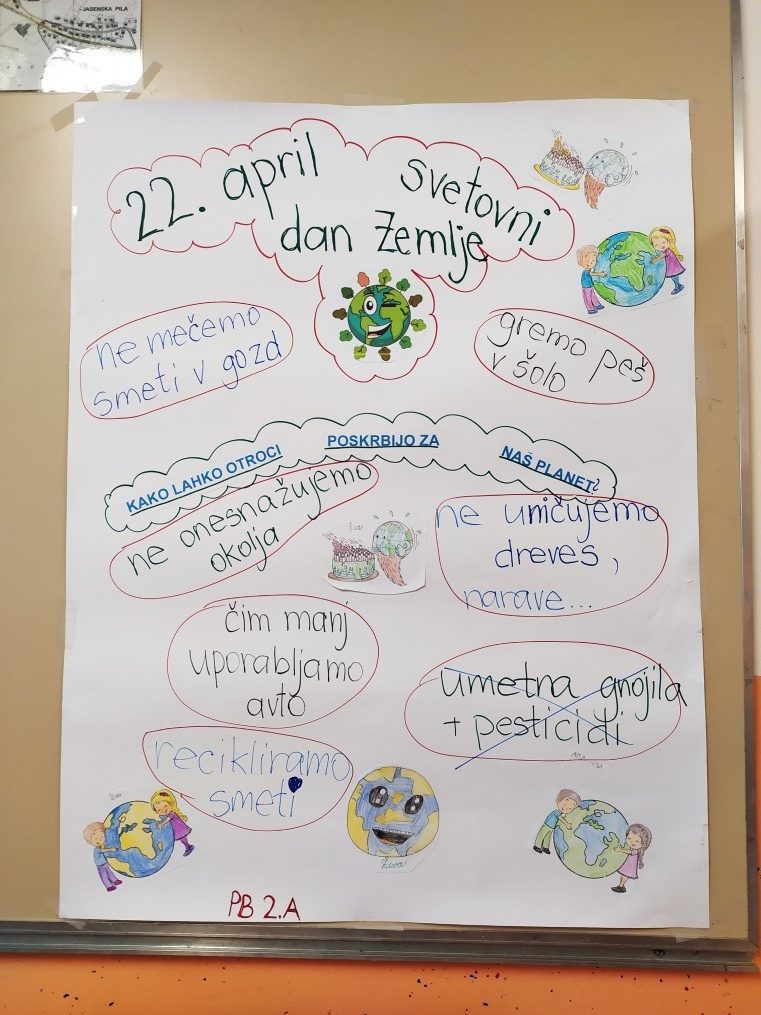 JASENSKA PILA
22. april svetovni
dan Zemlje
ne mečemo
smeti v gozd
gremo peš
v šolo
KAKO LAHKO OTROCI POSKRBIJO ZA NAŠ PLANET?
ne onesnažujemo
okolja
ne uničujemo
dreves,
narave...
čim manj
uporabljamo
avto
umetna gnojila
+ pesticidi
recikliramo
smeti
Živa
PB 2.A